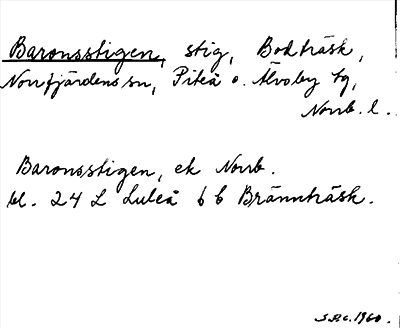 Baronsstigen, stig, Bodträsk,
Norrfjärdens sn, Piteå o. Älvsby tg,
Norrb. l.
Baronsstigen, ek Norrb.
bl. 24 L Luleå 6 b Brännträsk.
1960.